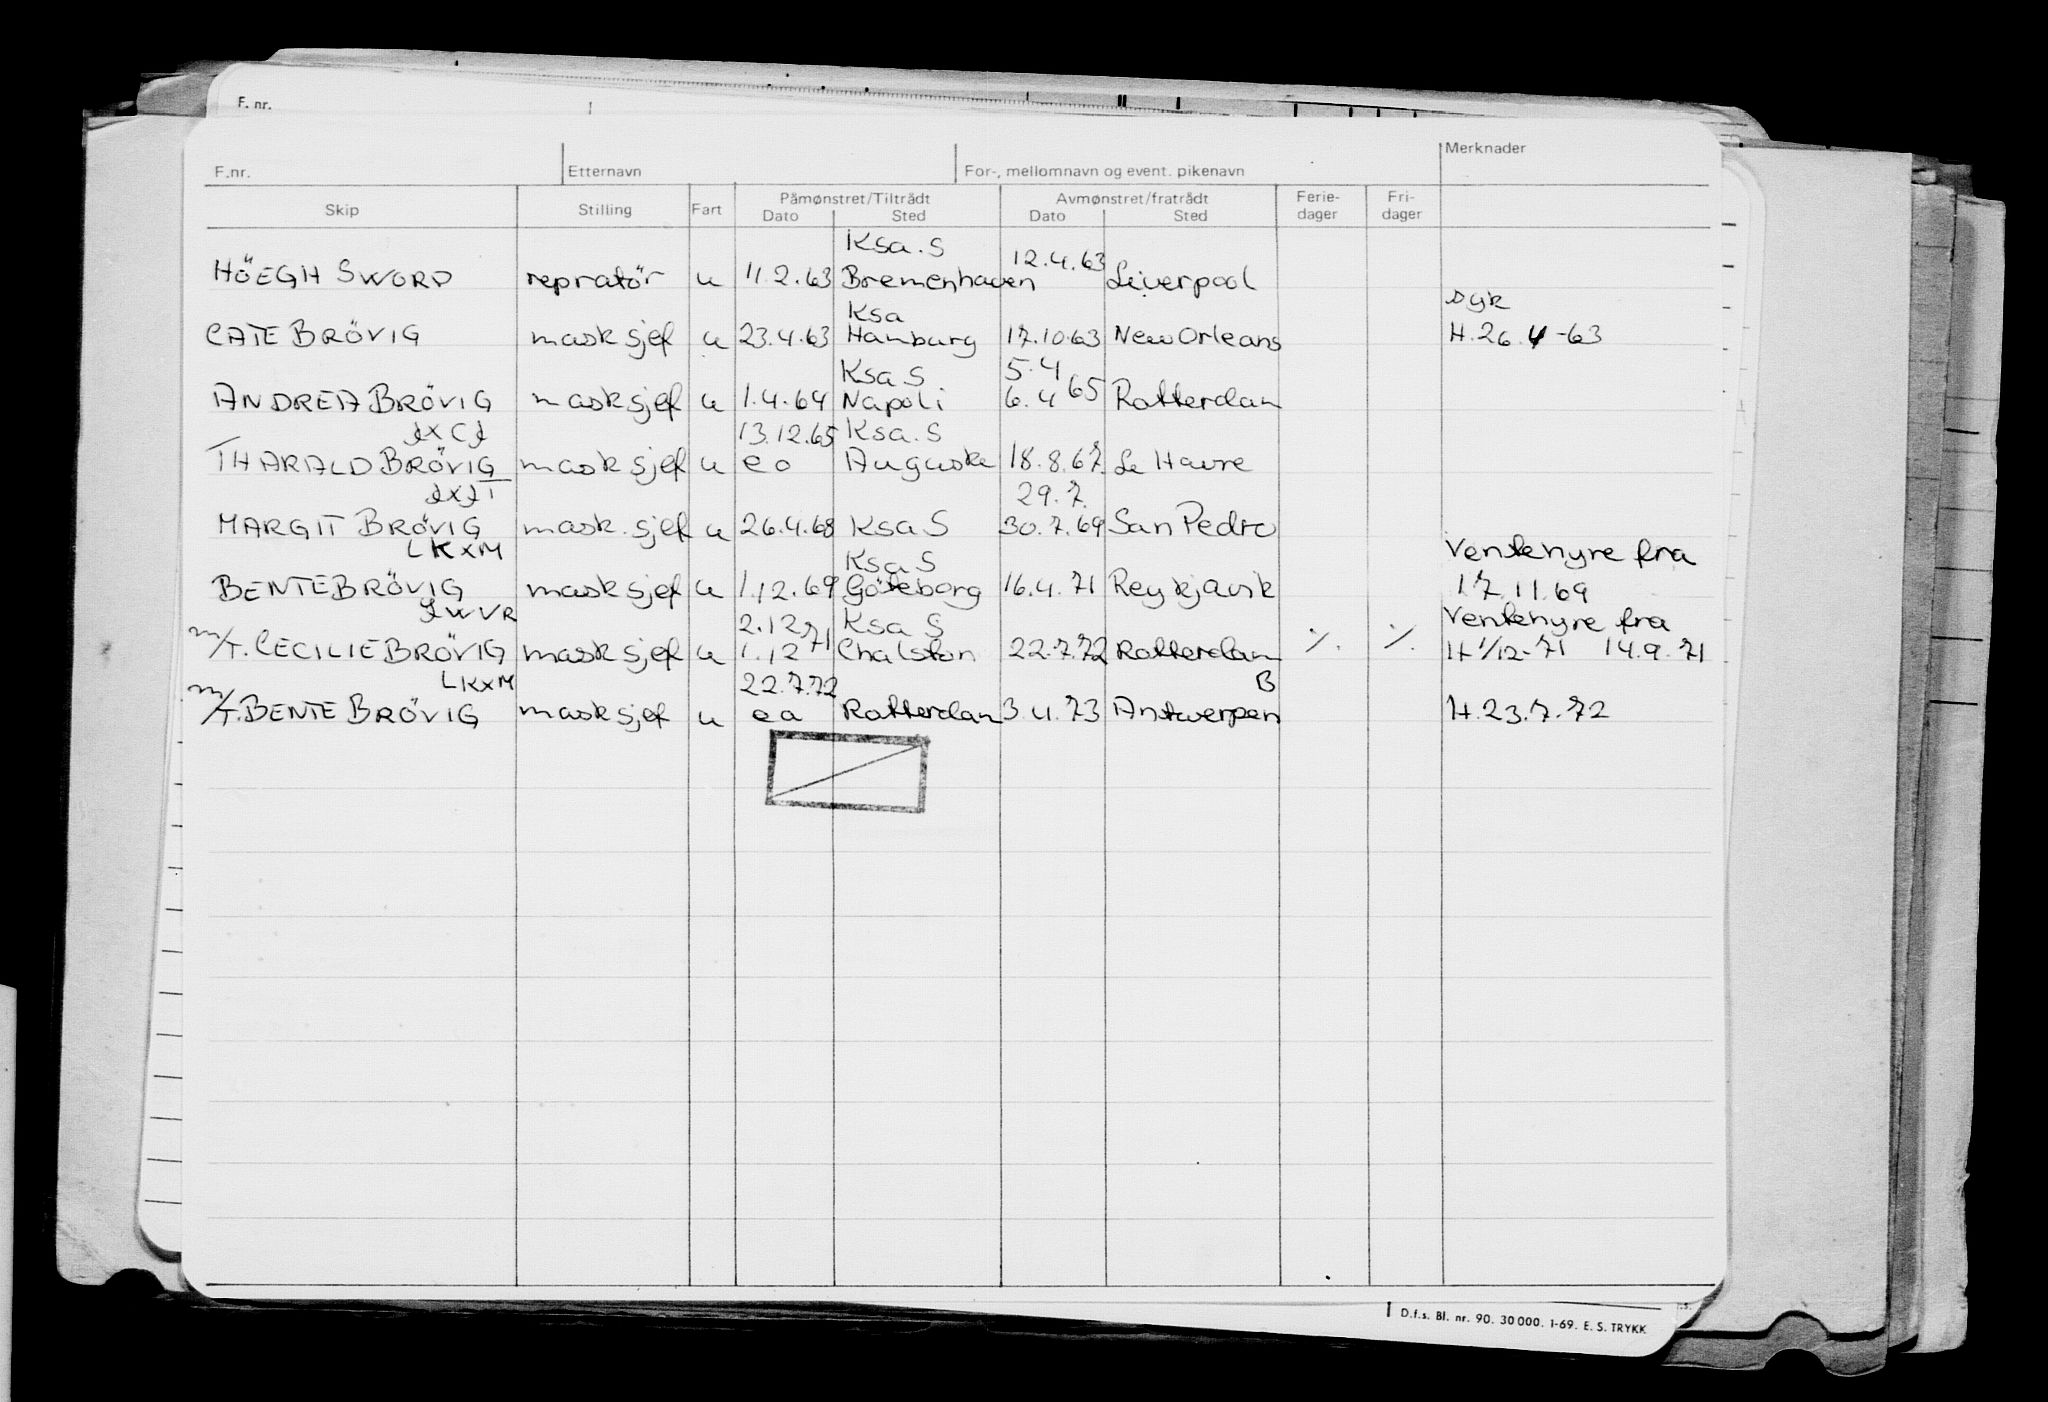 F. nr.
F.nr. Etternavn For-, mellomnavn og event. pikenavn Merknader
Skip Stilling Fart Påmønstret/Tiltrådt Dato Sted Avmønstret/fratrådt Dato Sted Ferie-dager Fri-dager
Ksa. S
HÖEGH SWORD repratör u 11.2.63 Bremenhaven 12.4.63 Liverpool
Ksa Dyk
CATE BRÖVIG mask sjef u 23.4.63 Hamburg 17.10.63 New Orleans H. 26.4-63
Ksa S 5.4
ANDREA BRÖVIG mask sjef u 1.4.64 Napoli 6.4 65 Rotterdam
13.12.65 Ksa. S
THARALD BRÖVIG mask sjef u e o Auguska 18.8.67 Le Havre
29.7.
MARGIT BRÖVIG mask. sjef u 26.4.68 Ksa S 30.7.69 San Pedro
LKXM Ksa S Ventehyre fra
BENTE BRÖVIG mask sjef u 1.12.69 Göteborg 16.4.71 Reykjavik 17.11.69
2.12 71 Ksa S Ventehyre fra
m/T. CECILIE BRÖVIG mask sjef u 1.12 Chalston 22.7.72 Rotterdam ./. ./. H 1/12-71 14.9.71
LKXM 22.7.72 B
m/T. BENTE BRÖVIG mask sjef u e o Rotterdam 3.4.73 Antwerpen H. 23.7.72
D.f.s. Bl. nr. 90. 30 000. 1-69. E. S. TRYKK